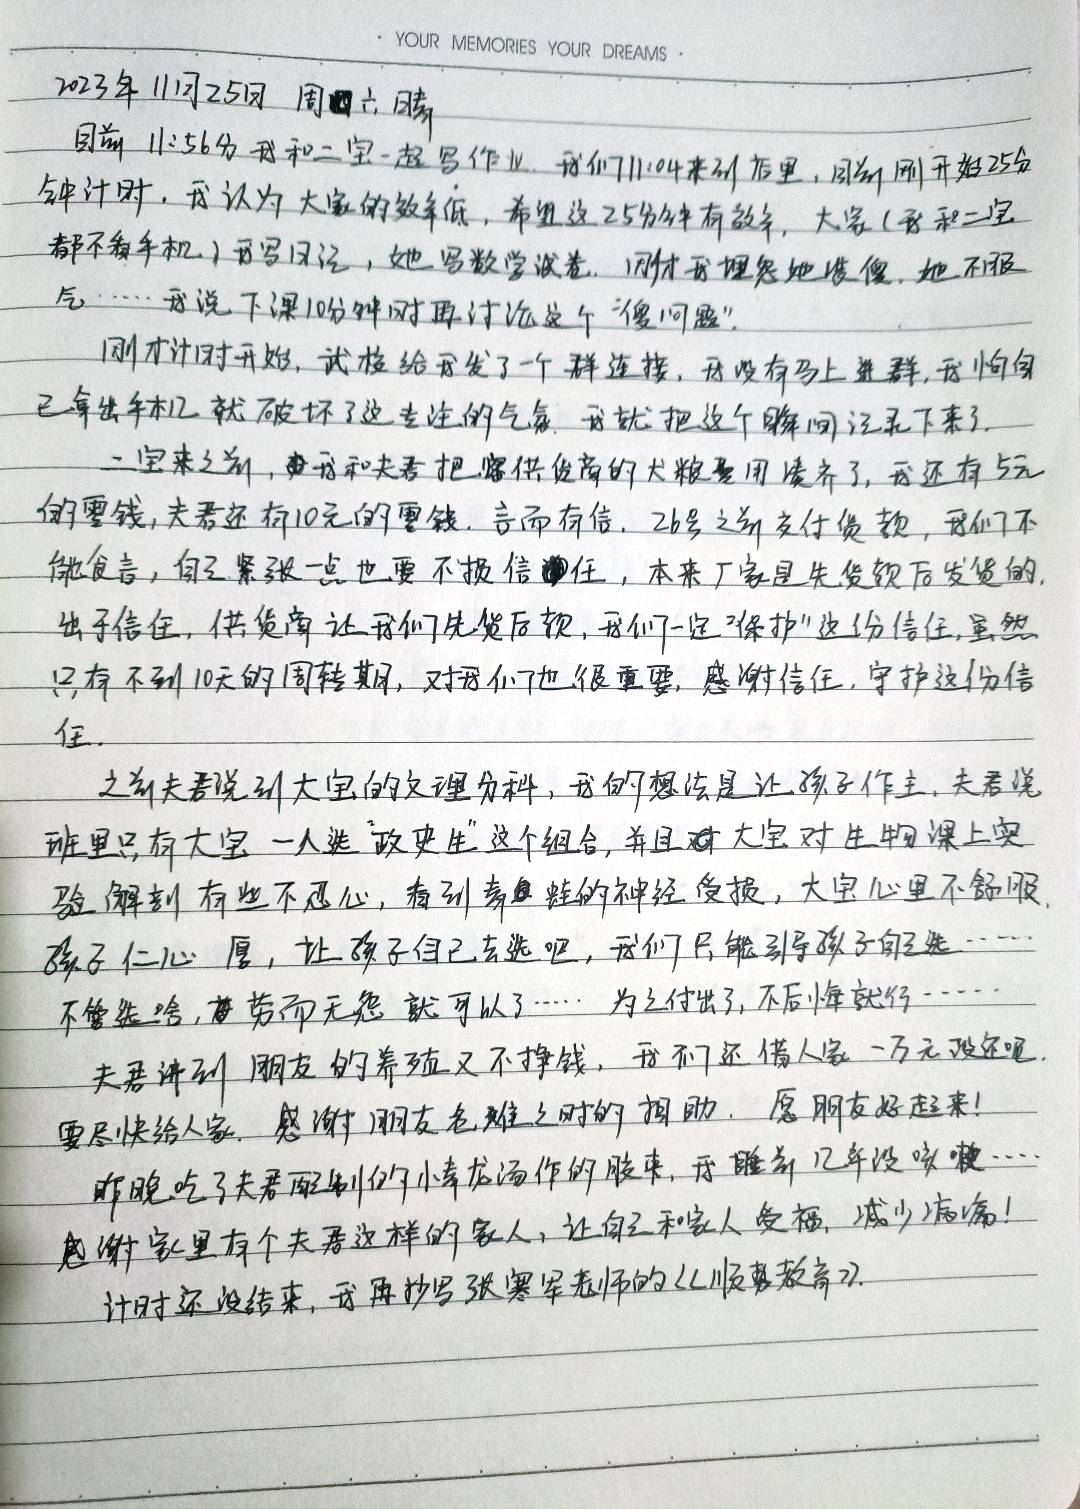 · YOUR MEMORIES YOUR DREAMS ·
2023年11月25日 周六 晴
目前11:56分我和二宝一起写作业.我们11:04来到店里,目前刚开始25分
钟计时.我认为大家的效率低,希望这25分钟有效率,大家(我和二宝
都不看手机)我写日记,她写数学试卷.刚才我埋怨她装傻.她不服
气……我说下课10分钟时再讨论这个“傻问题”.
刚才计时开始,武校给我发了一个群连接,我没有马上进群,我怕自
己拿出手机就破坏了这专注的气氛.我就把这个瞬间记录下来了.
二宝来之前,我和夫君把供货商的犬粮费用凑齐了,我还有5元
的零钱,夫君还有10元的零钱.言而有信.26号之前支付货款,我们不
能食言,自己紧张一点也要不损信任,本来厂家是先货款后发货的.
出于信任,供货商让我们先货后款,我们一定“保护”这份信任,虽然
只有不到10天的周转期,对我们也很重要,感谢信任.守护这份信
任.
之前夫君说到大宝的文理分科,我的想法是让孩子作主.夫君说
班里只有大宝一人选“政史生”这个组合,并且大宝对生物课上实
验解剖有些不忍心,看到青蛙的神经受损,大宝心里不舒服.
孩子仁心厚,让孩子自己去选吧,我们只能引导孩子自己选……
不管选啥,劳而无怨就可以了……为之付出了,不后悔就行……
夫君讲到朋友的养殖又不挣钱,我们还借人家一万元没还呢.
要尽快给人家.感谢朋友危难之时的相助.愿朋友好起来!
昨晚吃了夫君配制的小青龙汤作的胶囊,我睡前几乎没咳嗽……
感谢家里有个夫君这样的家人,让自己和家人受福,减少病痛!
计时还没结束,我再抄写张寒军老师的《顺势教育》.